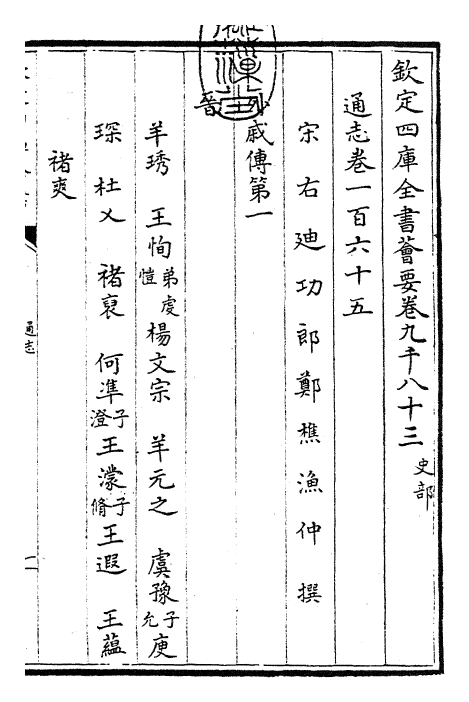 欽定四庫全書薈要卷九千八十三 史部
通志卷一百六十五
宋右廸功郎鄭樵漁仲撰
戚傳第一
晉
羊琇 王恂 弟虔愷 楊文宗 羊元之 虞豫 子允 庾
琛 杜乂 褚裒 何凖 子澄 王濛 子脩 王遐 王蘊
褚爽
通志
一